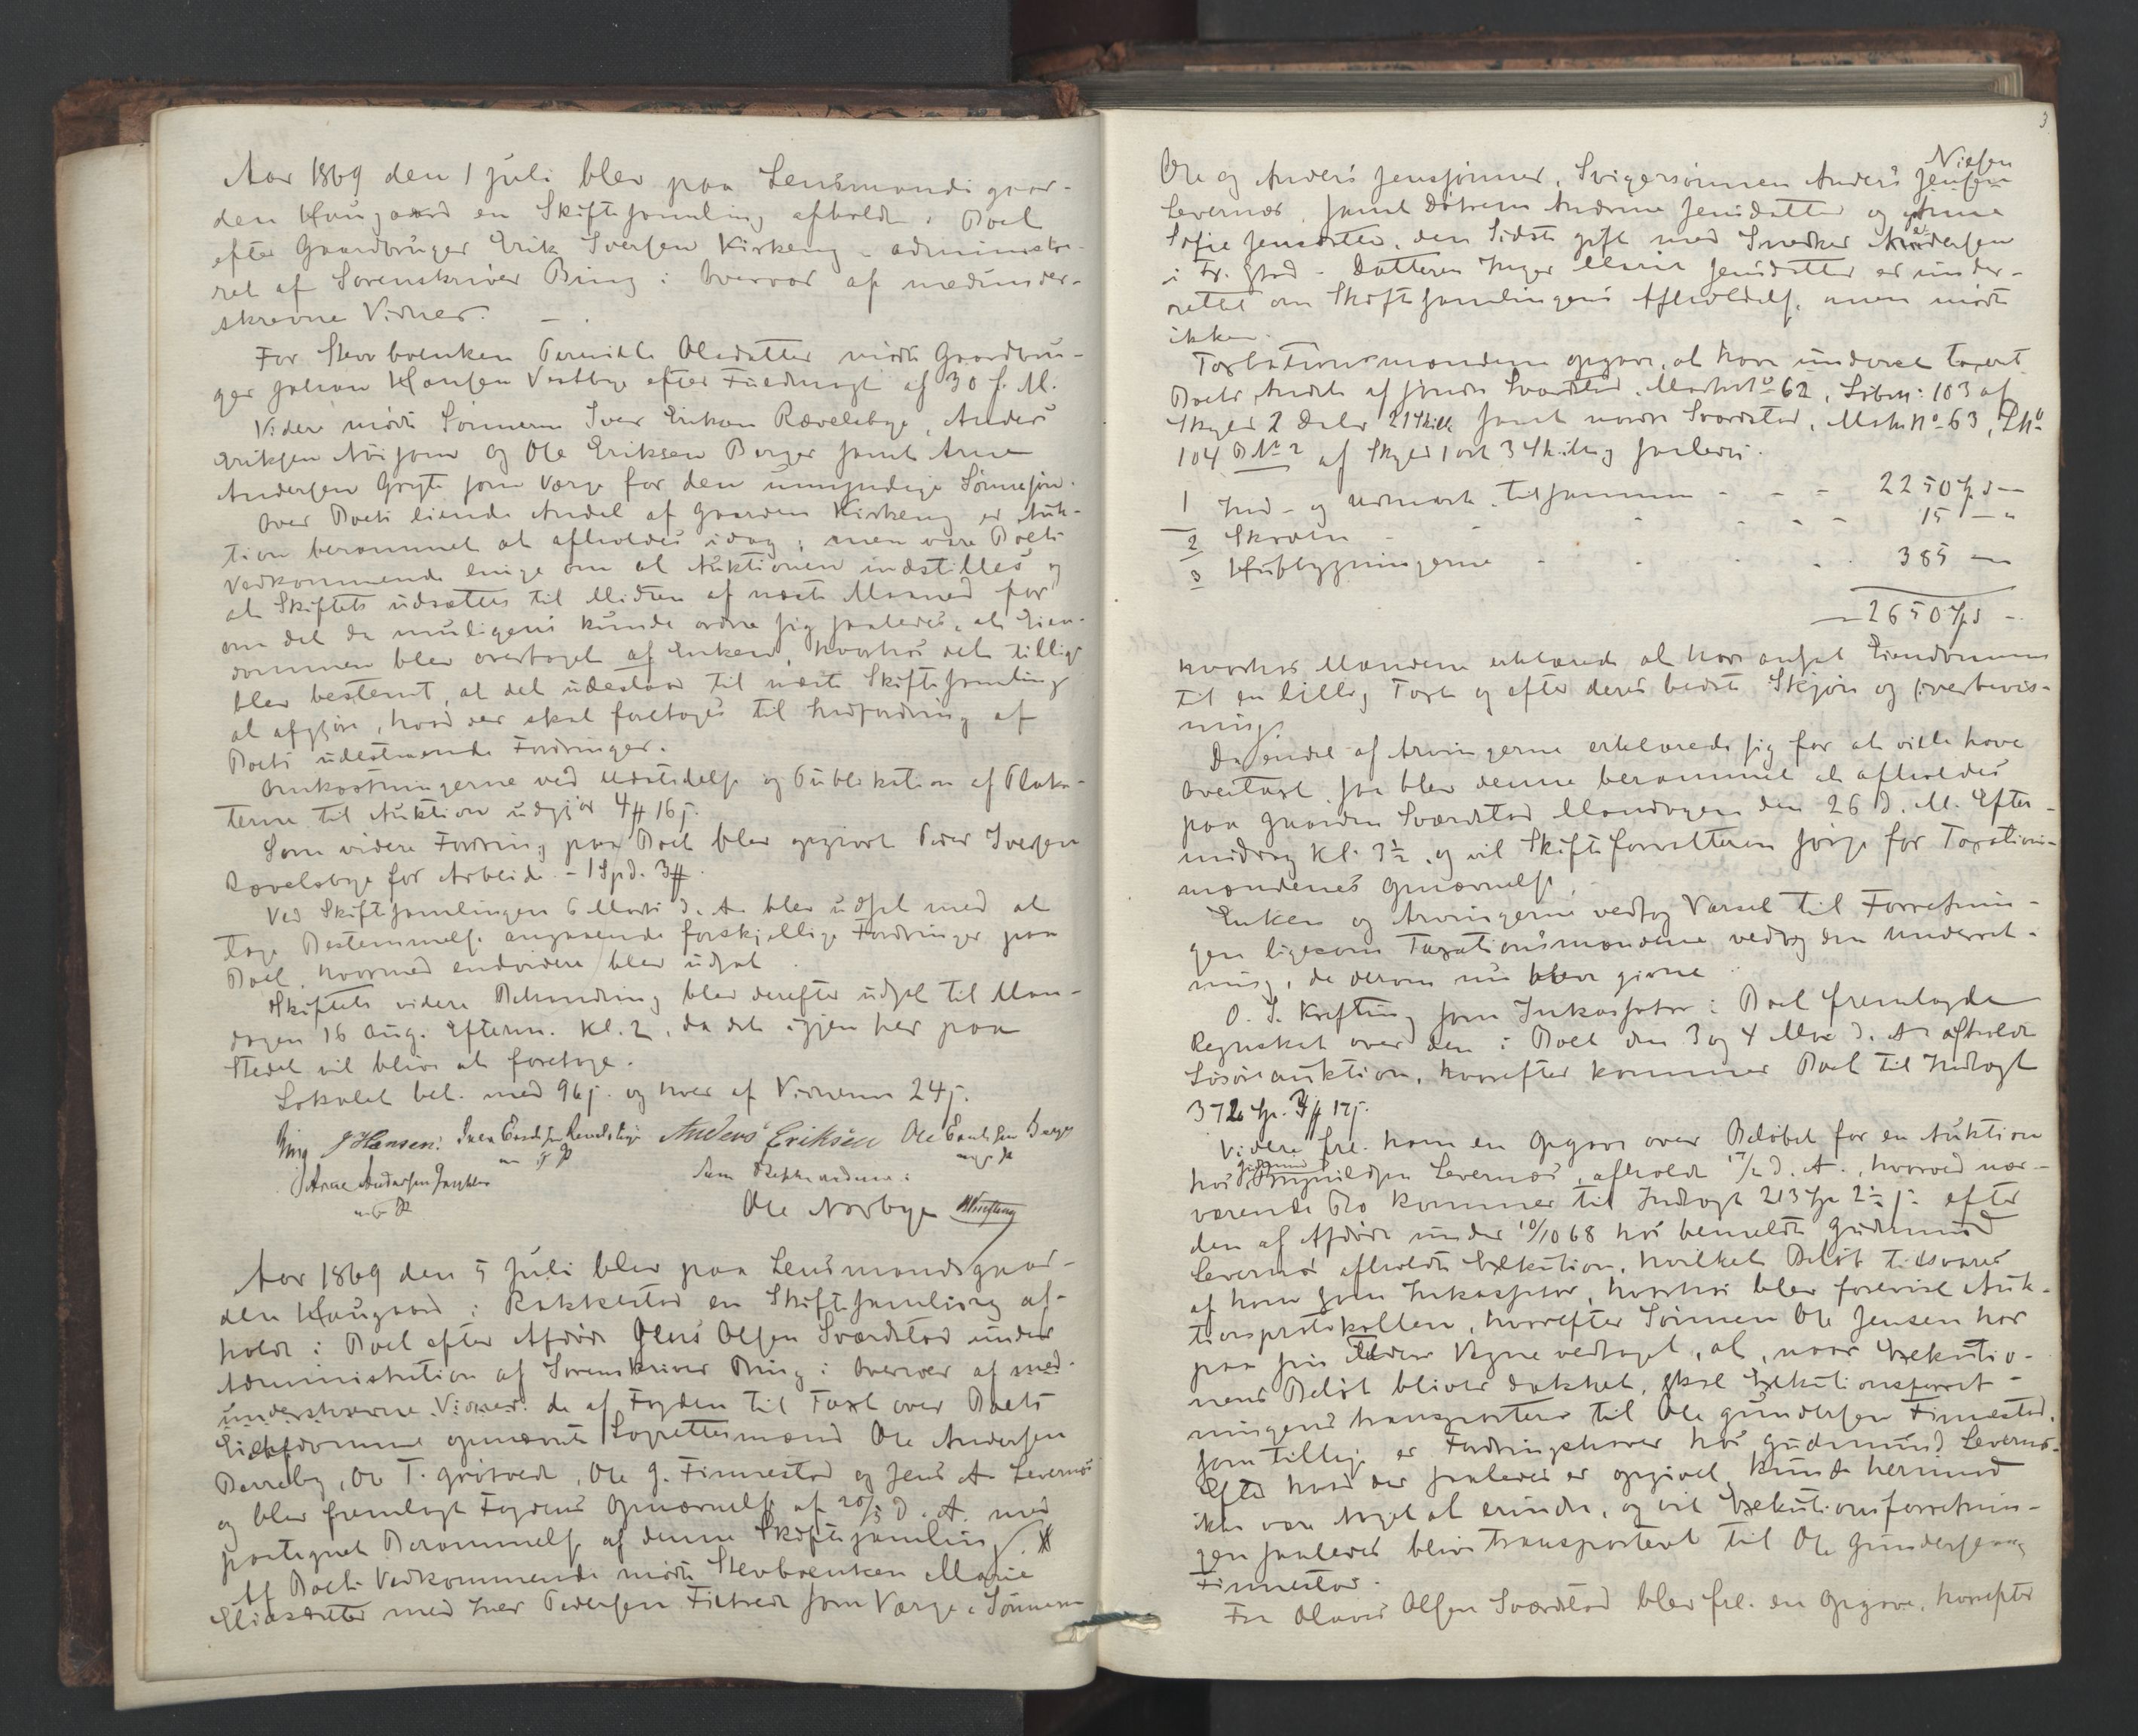 Aar 1869 den 1 Juli blev paa Lensmandsgaar-
den Haugaard en Skiftesamling afholdt i Boet
efter Gaardbruger Erik Iversen Kirkeng - administre-
ret af Sorenskriver Bing i Overvær af medunder-
skrevne Vidner. —
For Stervboenken Pernille Olsdatter mødte Gaardbru-
ger Johan Hansen Vestbye efter Fuldmagt af 30 f. M.
Videre mødte Sønnerne Iver Eriksen Rævelsbye, Anders
Eriksen og Ole Eriksen Berger samt Arne
Andersen som Værge for den umyndige Sønnesøn.
Over Boets eiende Andel af Gaarden Kirkeng er Auk-
tion berammet at afholdes idag; men vare Boets
Vedkommende enige om at Auktionen indstilles og
at Skiftets udsættes til Midten af næste Maaned for
om det da muligens kunde ordne sig saaledes, at Eien-
dommen blev overtaget af Enken, hvorhos det tillige
blev bestemt, at det udestaar til næste Skiftesamling
at afgjøre, hvad der skal foretages til Indfordring af
Boets udestaaende Fordringer.
Omkostningerne ved Udstedelse og Publikation af Plaka-
terne til Auktion udgjør 4 # 16 s.
Som videre Fordring paa Boet blev opgivet Peder Iversen
Rævelsbye for Arbeide - 1 Spd. 3 #.
Ved Skiftesamlingen 6 Marts d. A. blev udsat med at
tage Bestemmelse angaaende forskjellige Fordringer paa
Boet, hvormed endvidere blev udsat.
Skiftets videre Behandling blev derefter udsat til Man-
dagen 16 Aug. Efterm. Kl. 2, da det igjen her paa
Stedet vil blive at foretage.
Lokalet bet. med 96 s. og hver af Vidnerne 24 s.
Bing J Hansen. Anders Eriksen Ole Eriksen Berger
Arne Andersen
Som Skiftevidner:
Ole Norbye
Aar 1869 den 5 Juli blev paa Lensmandsgaar-
den Haugaard i Rakkestad en Skiftesamling af-
holdt i Boet efter Afdøde Jens Olsen Sværdstad under
Administration af Sorenskriver Bing i Overvær af med-
underskrevne Vidner. de af Fogden til Taxt over Boets
Eiendomme opnævnte Lagrettesmænd Ole Andersen
Berreby, Ole T. Gritvedt, Ole G. Finnestad og Jens A. Levernæs
og blev fremlagt Fogdens Opnævnelse af 20/5 d. A. med
paategnet Berammelse af denne Skiftesamling.
Af Boets Vedkommende mødte Stervboenken Marie
Eliasdatter med Iver Pedersen som Værge, Sønnerne
3
Ole og Anders Jenssønner, Svigersønnen Anders Jensen Nielsen
Levernæs, samt Døtrene Andrine Jensdatter og Anne
Sofie Jensdatter, den Sidste gift med Snedker Andersen
i Fr. Stad - Datteren Inger Marie Jensdatter er under-
rettet om Skiftesamlingens Afholdelse, men mødte
ikke.
Taxtationsmændene opgave, at have underet taxeret
Boets Andel af søndre Sværdstad, Matr. No 62, Løben: 103 af
Skyld 2 Daler 21 Skill samt nordre Sværdstad, Matr. No 63, LNo
104 B No 2 af Skyld 1 ort 3 Skilling saaledes.
1 Ind- og Udmark tilsammen - - - 2250 Spd —
2 Skoven - - - - 15 — "
3 Husbygningerne - - - - 385 —
— 2650 Spd -
hvorhos Mændene erklærede at have ansat Eiendommen
til en billig Taxt og efter deres bedste Skjøn og Overbevis-
ning.
Da endel af Arvingerne erklærede sig for at ville have
Overtaxt, saa blev denne berammet at afholdes
paa Gaarden Sværdstad Mandagen den 26 d. M. Efter-
middag Kl. 3½, og vil Skifteforvalteren sørge for Taxations-
mændenes Opnævnelse.
Enken og Arvingerne vedtog Varsel til Forretnin-
gen ligesom Taxationsmændene vedtog den Underret-
ning, de derom nu bleve givne.
O. S. Krefting som Inkassator i Boet fremlagde
Regnskab over den i Boet den 3 og 4 Mai d. A. afholdt
Løsøreauktion, hvorefter kommer Boet til Indtægt
372 Sp. 3 # 17 s.
Videre fre. ham en Opgave over Beløbet for en Auktion
hos Gudmund Levernæs, afholdt 17/2 d. A., hvorved nær-
værende Bo kommer til Indtægt 213 Sp 2 s. efter
den af Afdøde under 10/10 68 hos bemeldte Gudmund
Levernæs afholdte Exekution, hvilket Beløb tilsvares
af ham som Inkassator, hvorhos blev forevist Auk-
tionsprotokollen, hvorefter Sønnen Ole Jensen har
paa sin Faders Vegne vedtaget, at, naar Exekutio-
nens Beløb bliver dækket, skal Exekutionsforret-
ningen transporteres til Ole Gundersen Finnestad,
som tillige er Fordringshaver hos Gudmund Levernæs.
Efter hvad der saaledes er opgivet kunde hermed
ikke være Noget at erindre, og vil Exekutionsforretnin-
gen saaledes blive transporteret til Ole Gundersen
Finnestad.
Fra Olaves Olsen Sværdstad blev fre. en Opgave, hvorefter